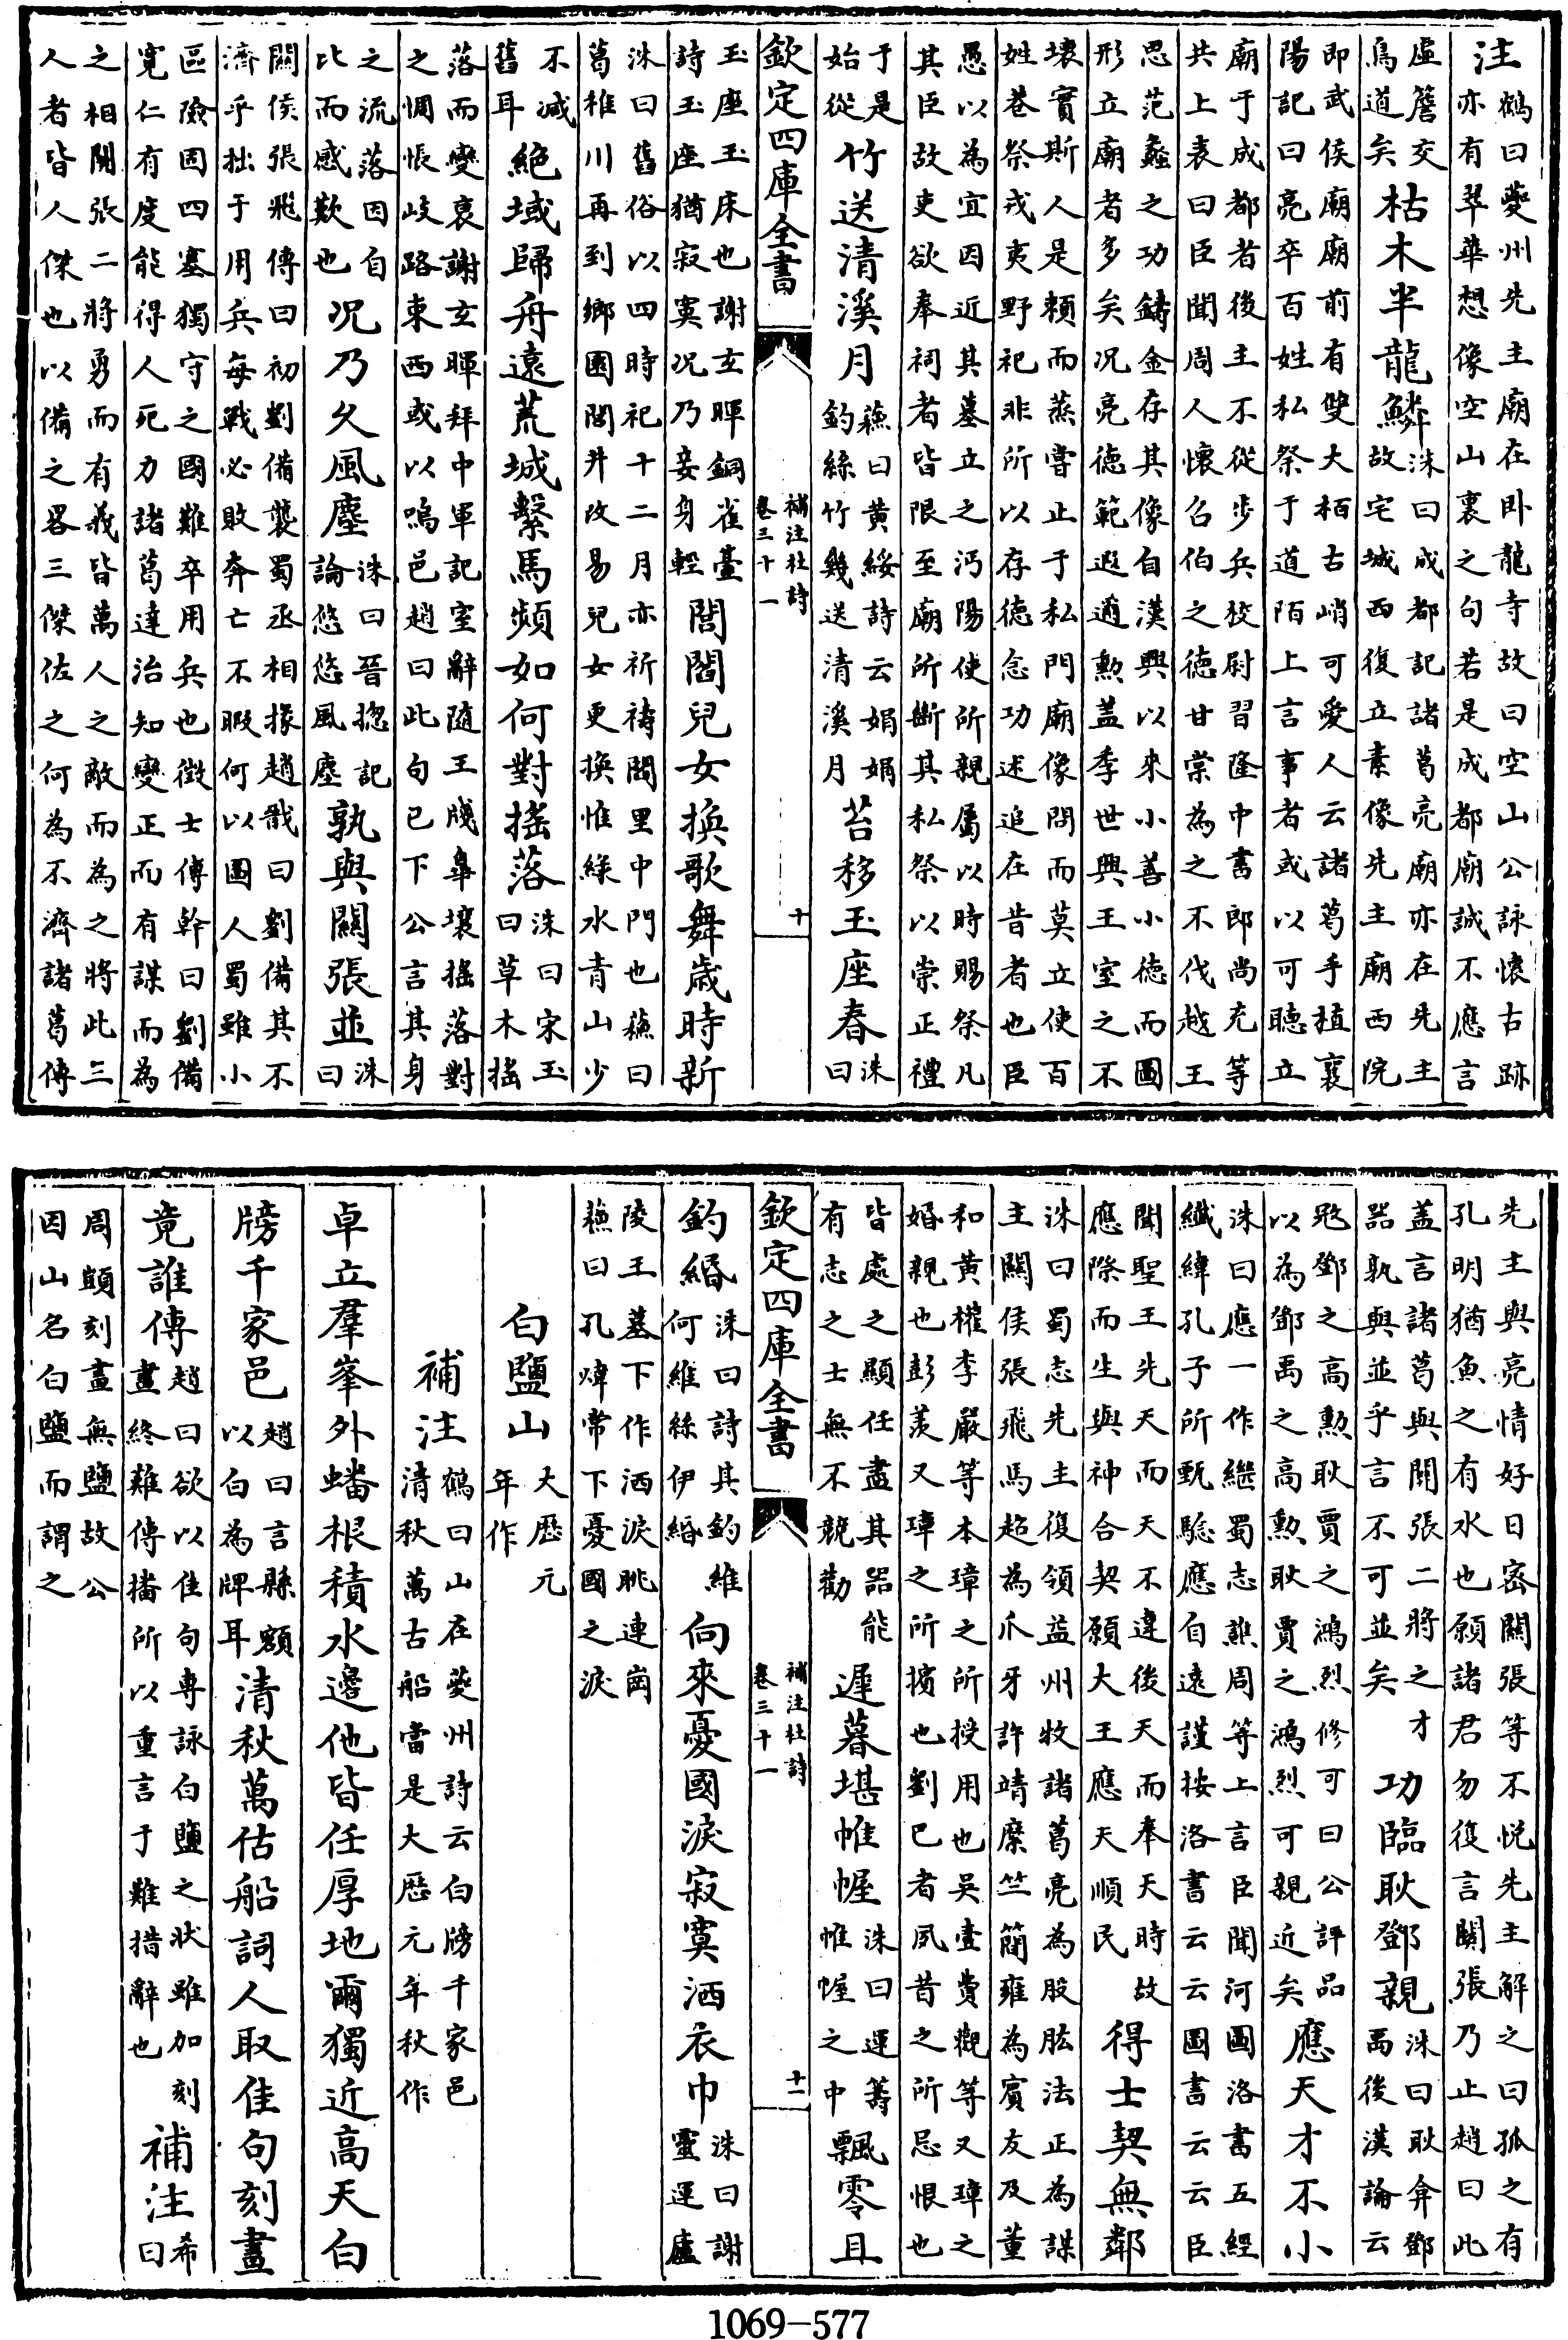 注鶴曰夔州先主廟在卧龍寺故曰空山公詠懷古跡亦有翠華想像空山裏之句若是成都廟誠不應言
虛簷交鳥道矣枯木半龍鱗洙曰成都記諸葛亮廟亦在先主故宅城西復立素像先主廟西院
即武侯廟廟前有雙大栢古峭可愛人云諸葛手植襄陽記曰亮卒百姓私祭于道陌上言事者或以可聽立
廟于成都者後主不從步兵校尉習隆中書郎尚充等共上表曰臣聞周人懷召伯之徳甘棠為之不伐越王
思范蠡之功鑄金存其像自漢興以來小善小徳而圖形立廟者多矣况亮徳範遐邇勲盖季世興王室之不
壞實斯人是頼而蒸嘗止于私門廟像闕而莫立使百姓巷祭戎夷野祀非所以存徳念功述追在昔者也臣
愚以為宜因近其墓立之沔陽使所親屬以時賜祭凡其臣故吏欲奉祠者皆限至廟所斷其私祭以崇正禮
于是始從竹送清溪月蘓曰黄綬詩云娟娟釣絲竹幾送清溪月苔移玉座春洙曰
欽定四庫全書 補注杜詩 卷三十一 十
玉座玉床也謝玄暉銅雀臺詩玉座猶寂寞况乃妾身輕閭閻兒女換歌舞歲時新
洙曰舊俗以四時祀十二月亦祈禱閭里中門也蘓曰葛稚川再到鄉園閭井改易兒女更換惟緑水青山少
不减舊耳絶域歸舟遠荒城繫馬頻如何對揺落洙曰宋玉曰草木揺
落而變衰謝玄暉拜中軍記室辭隨王牋臯壤揺落對之惆悵岐路東西或以嗚邑趙曰此句已下公言其身
之流落因自比而感歎也况乃久風塵洙曰晉揔記論悠悠風塵孰與闗張並洙曰
闗侯張飛傳曰初劉備襲蜀丞相掾趙戩曰劉備其不濟乎拙于用兵每戰必敗奔亡不暇何以圖人蜀雖小
區險固四塞獨守之國難卒用兵也徴士傅幹曰劉備寛仁有度能得人死力諸葛達治知變正而有謀而為
之相闗張二將勇而有義皆萬人之敵而為之將此三人者皆人傑也以備之畧三傑佐之何為不濟諸葛傳
先主與亮情好日宻闗張等不悦先主解之曰孤之有孔明猶魚之有水也願諸君勿復言闗張乃止趙曰此
盖言諸葛與闗張二將之才器孰與並乎言不可並矣功臨耿鄧親洙曰耿弇鄧禹後漢論云
跑鄧之高勲耿賈之鴻烈修可曰公評品以為鄧禹之高勲耿賈之鴻烈可親近矣應天才不小
洙曰應一作繼蜀志譙周等上言臣聞河圖洛書五經纖緯孔子所甄騐應自遠謹按洛書云云圖書云云臣
聞聖王先天而天不違後天而奉天時故應際而生與神合契願大王應天順民得士契無鄰
洙曰蜀志先主復領益州牧諸葛亮為股肱法正為謀主闗侯張飛馬超為爪牙許靖縻竺簡雍為賓友及董
和黄權李嚴等本璋之所授用也吳壹費觀等又璋之婚親也彭羕又璋之所擯也劉巴者夙昔之所忌恨也
皆處之顯任盡其器能有志之士無不競勸遲暮堪帷幄洙曰運籌帷幄之中飄零且
欽定四庫全書 補注杜詩 卷三十一 十一
釣緡洙曰詩其釣維何維絲伊緡向來憂國淚寂寞洒衣巾洙曰謝靈運廬
陵王墓下作洒淚眺連崗蘓曰孔煒常下憂國之淚
白鹽山大歴元年作
補注鶴曰山在夔州詩云白牓千家邑清秋萬古船當是大歴元年秋作
卓立羣峯外蟠根積水邊他皆任厚地爾獨近高天白
牓千家邑趙曰言縣額以白為牌耳清秋萬估船詞人取佳句刻畫
竟誰傳趙曰欲以佳句専詠白鹽之狀雖加刻畫終難傳播所以重言于難措辭也補注希曰
周顗刻畫無鹽故公因山名白鹽而謂之
1069-577